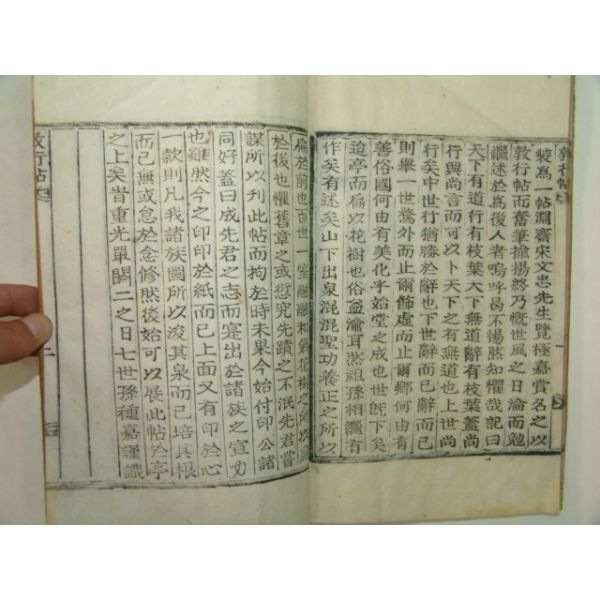 裝爲一帖淵齋宋文忠先生覽極嘉賞名之以
敦行帖而奮筆揄揚終乃慨世風之日淪而勉
繼述於爲後人者嗚呼曷不惕然知懼哉記曰
天下有道行有枝葉天下無道辭有枝葉蓋尚
行與尚言而可以卜天下之有無道也上世尚
行矣中世行猶勝於辭也下世辭而已辭而已
則擧一世騖外而止爾飾虛而止爾鄕何由有
善俗國何由有美化乎始堂之成也世旣下矣
迨亭而扁以花樹也俗益渝耳然祖孫相繼有
作矣有述矣山下出泉混混聖功養正之所以
扁於前也百世一室融融和氣花樹之所以
於後也懼舊章之或愆究先蹟之不泯先君嘗
謀所以刊此帖而拘於時未果今始付印公諸
同好蓋曰成先君之志而寔出於諸族之宣力
也雖然今之印印於紙而已上面又有印於心
一款則凡我諸族圖所以浚其泉而已培其根
而已無或怠於念修然後始可以展此帖於亭
之上矣旹重光單閼二之日七世孫種嘉謹識
敦行帖
二